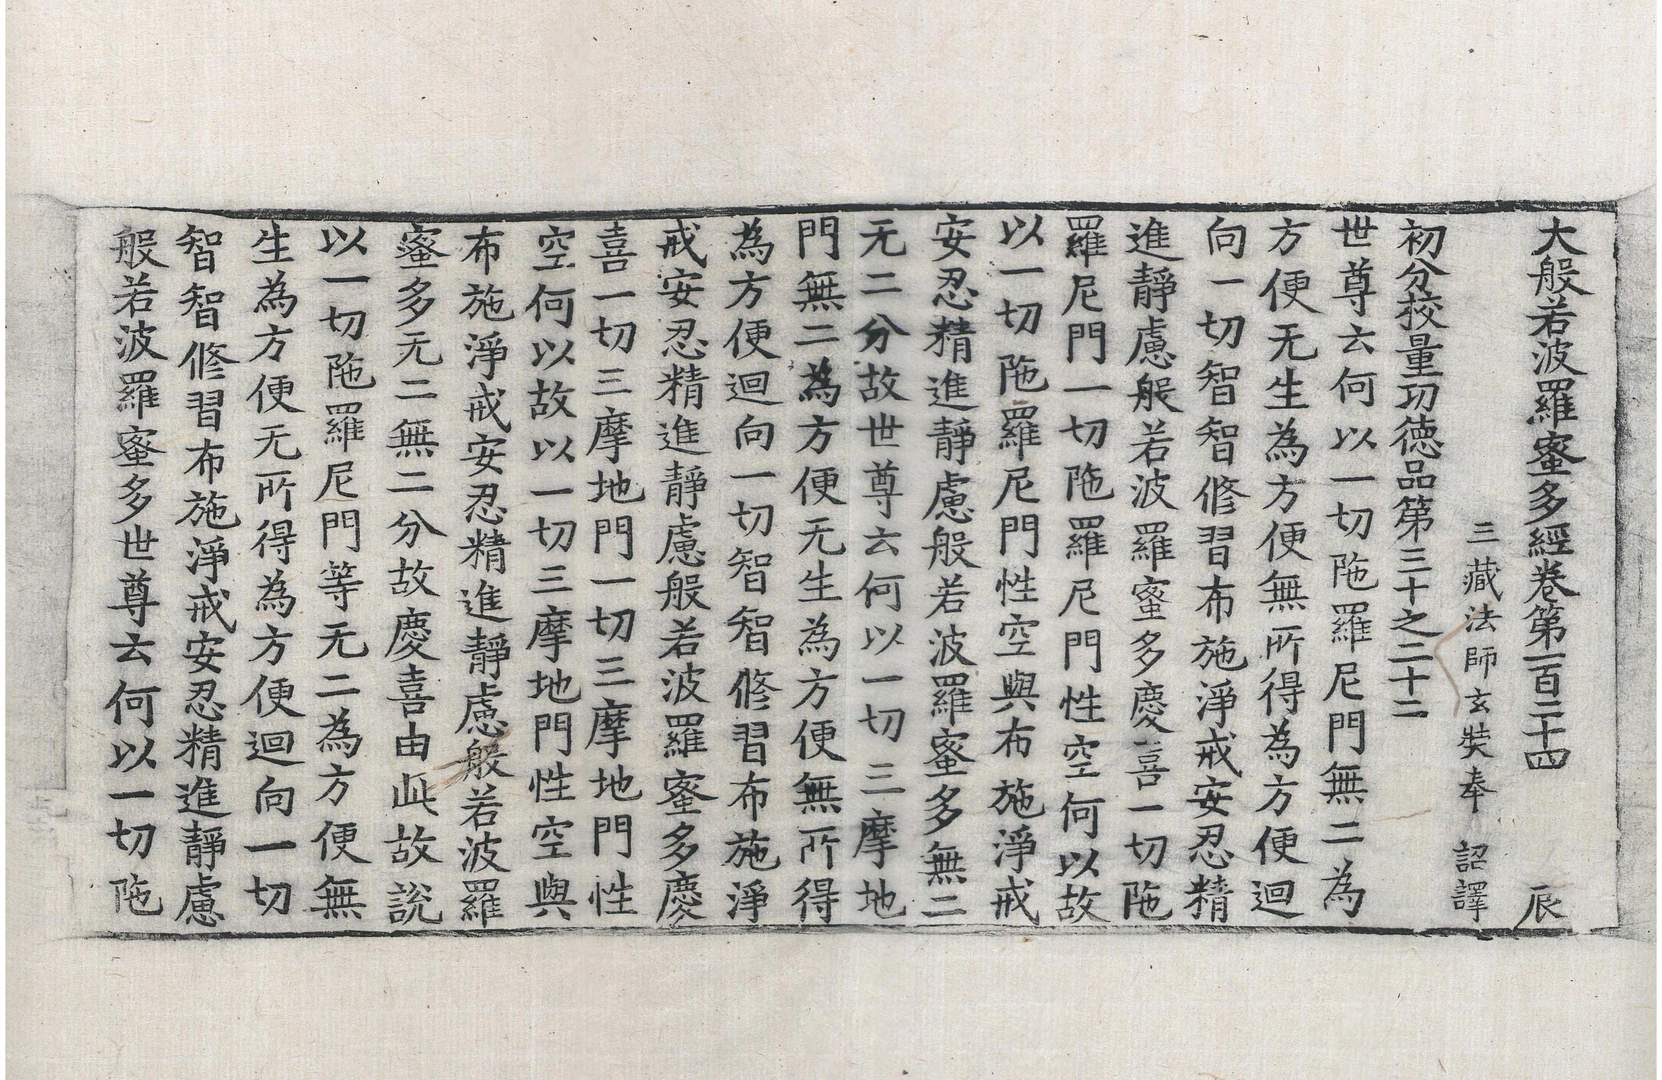 大般若波羅蜜多經卷第一百二十四 辰
三藏法師玄奘奉 詔譯
初分校量功德品第三十之二十二
世尊云何以一切陁羅尼門無二為
方便无生為方便無所得為方便迴
向一切智智修習布施淨戒安忍精
進靜慮般若波羅蜜多慶喜一切陁
羅尼門一切陁羅尼門性空何以故
以一切陁羅尼門性空與布施淨戒
安忍精進靜慮般若波羅蜜多無二
无二分故世尊云何以一切三摩地
門無二為方便无生為方便無所得
為方便迴向一切智智修習布施淨
戒安忍精進靜慮般若波羅蜜多慶
喜一切三摩地門一切三摩地門性
空何以故以一切三摩地門性空與
布施淨戒安忍精進靜慮般若波羅
蜜多无二無二分故慶喜由此故說
以一切陁羅尼門等无二為方便無
生為方便无所得為方便迴向一切
智智修習布施淨戒安忍精進靜慮
般若波羅蜜多世尊云何以一切陁